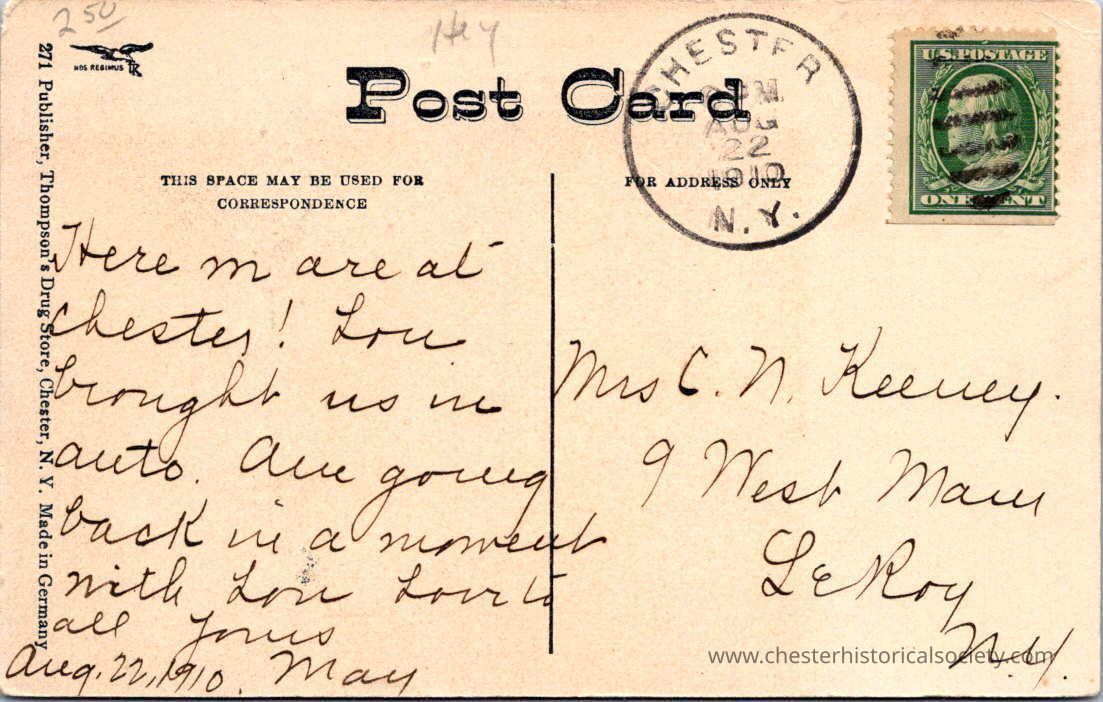 2.50
Hey
NOS REGIMUS
Post Card
THIS SPACE MAY BE USED FOR
CORRESPONDENCE
FOR ADDRESS ONLY
CHESTER
PM
AUG
22
1910
N.Y.
U.S. POSTAGE
ONE CENT
271 Publisher, Thompson's Drug Store, Chester, N. Y. Made in Germany
Here m are at
Chester! Lou
brought us in
auto. Are going
back in a moment
with Lou Love to
all Yours
Aug. 22, 1910. May
Mrs C. N. Keeney.
9 West Main
LeRoy
N.Y.
www.chesterhistoricalsociety.com